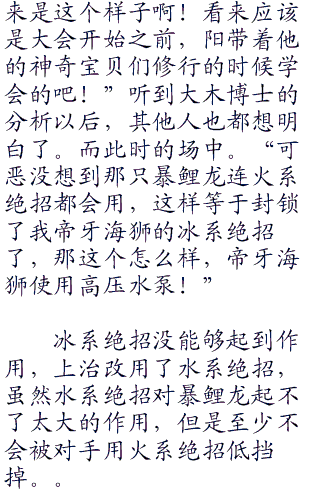 来是这个样子啊！看来应该
是大会开始之前，阳带着他
的神奇宝贝们修行的时候学
会的吧！”听到大木博士的
分析以后，其他人也都想明
白了。而此时的场中。“可
恶没想到那只暴鲤龙连火系
绝招都会用，这样等于封锁
了我帝牙海狮的冰系绝招
了，那这个怎么样，帝牙海
狮使用高压水泵！”
冰系绝招没能够起到作
用，上治改用了水系绝招，
虽然水系绝招对暴鲤龙起不
了太大的作用，但是至少不
会被对手用火系绝招低挡
掉。。